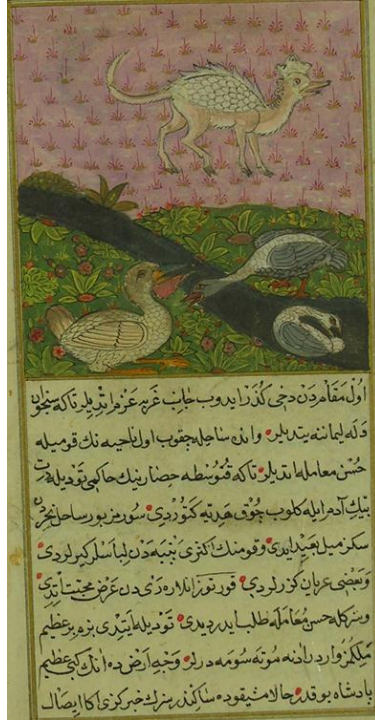 اول مقامدن دخی کذر ایدوب جانب غربه عزم اتدیلر تاکه سنجون
دله لیماننه یتدیلر وانده ساحله چقوب اول ناحیه نك قومیله
حسن معامله اتدیلر تاکه قنوسطه حصارینك حاکمی تودیله
بیك آدم ایله کلوب چوق هدیه کتوردی سورمز بو ساحل بحردن
سکز میل بعید ایدی وقومنك اکثری پنبه دن لباسلر کیرلردی
وبعضی عریان کزرلردی قورتوز انلاره دی دن غرض محبت آندی
وبزکله حسن معامله طلب ایدر دیدی تودیله ایتدی بزم بر عظیم
ملکمز وارد ر ادنه موته سومه درلر وجه ارض ده انك کبی عظیم
پادشاه یوقدر حالا مشیقوده ساکندر بزك خبرکزی اکا ایصال